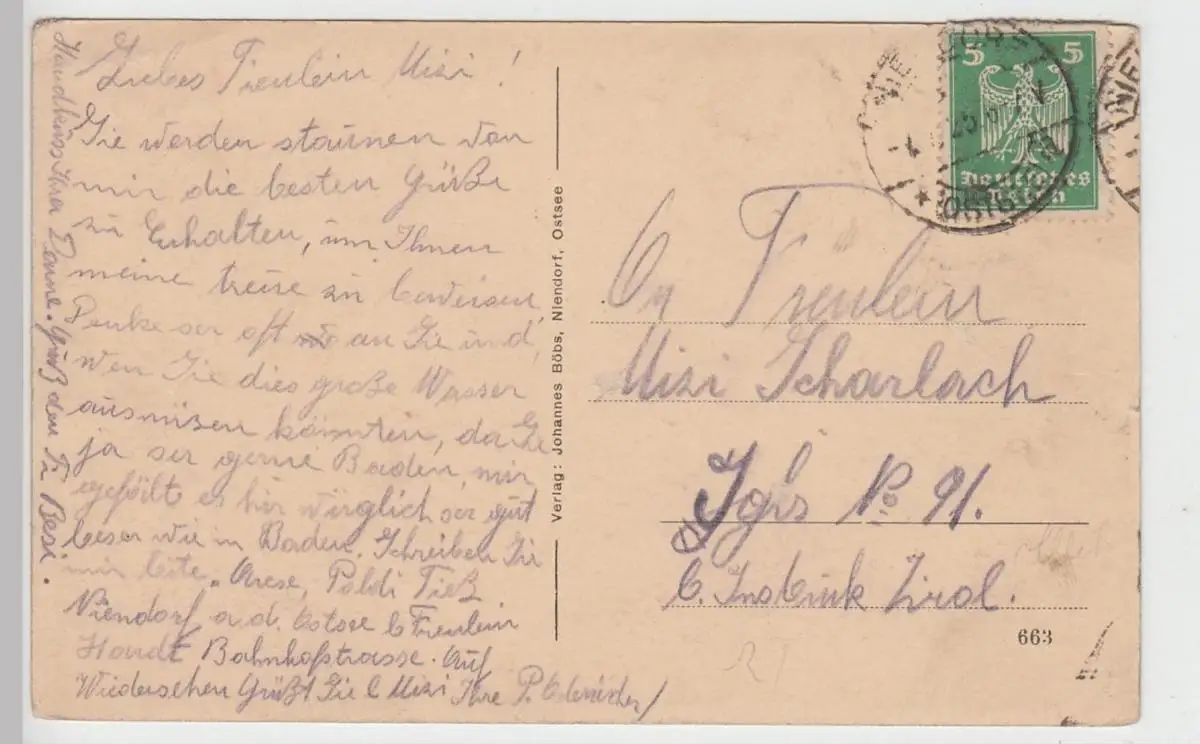 Liebes Freulein Mizi!
Sie werden staunen von
mir die besten Grüße
zu Erhalten, um Ihnen
meine treue zu beweisen,
Denke ser oft an Sie und,
wen Sie dies große Wasser
ausnüzen könnten, da Sie
ja ser gerne Baden, mir
gefält es hir würglich ser gut
beser wie in Baden. Schreiben Sie
mir bite, Poldi Tieß
Niendorf a. d. Ostsee b Freulein
Bahnhofstrasse. Auf
Wiedersehen Grüßt Sie l Mizi Ihre P.
Handküss Ihrer Grüß den Fr Besi.
Verlag: Johannes Böbs, Niendorf, Ostsee
5 5
Deutsches
Reich
NIENDORF
25
(OSTSEE)
An Freulein
Mizi Scharlach
Igls No 91.
b. Insbruk Tirol.
663